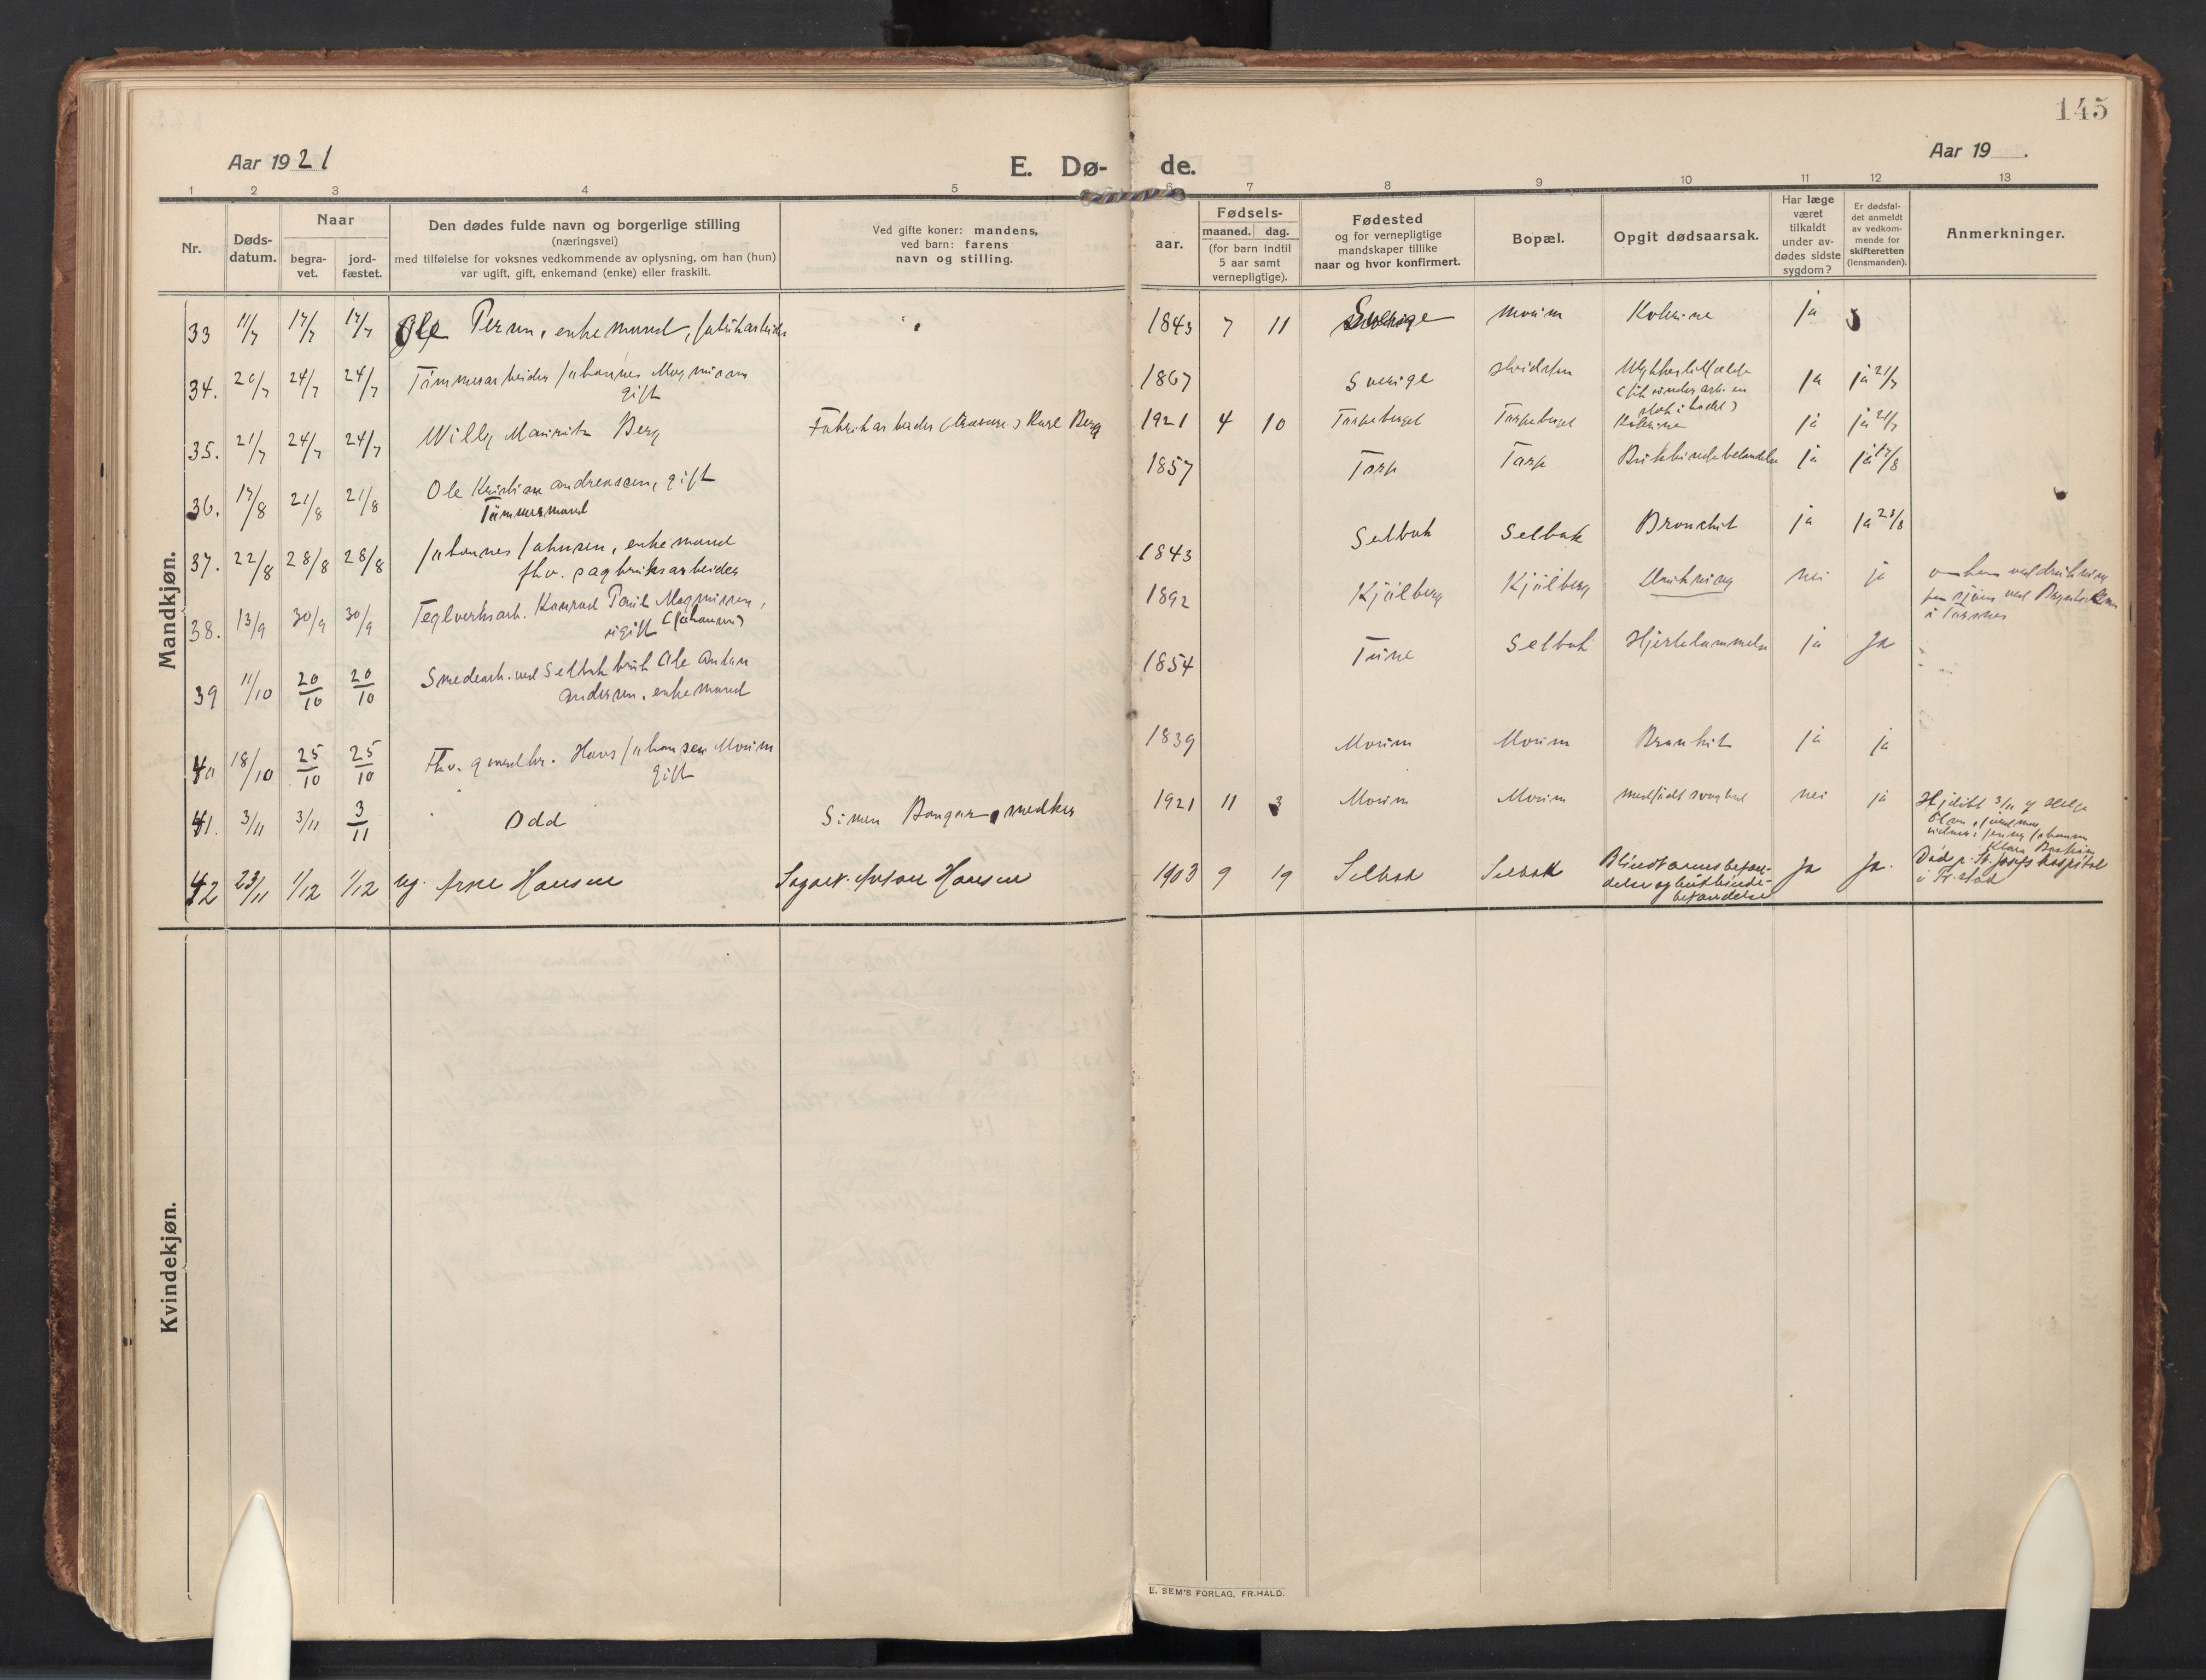 145
Aar 1921
E. Dø- de.
Aar 19 .
1 2 3 4 5 6 7 8 9 10 11 12 13
Nr.
Døds-
datum.
Naar
begra-
vet.
jord-
fæstet.
Den dødes fulde navn og borgerlige stilling
(næringsvei)
med tilføielse for voksnes vedkommende av oplysning, om han (hun)
var ugift, gift, enkemand (enke) eller fraskilt.
Ved gifte koner: mandens,
ved barn: farens
navn og stilling.
aar.
Fødsels-
maaned. dag.
(for barn indtil
5 aar samt
vernepligtige).
Fødested
og for vernepligtige
mandskaper tillike
naar og hvor konfirmert.
Bopæl.
Opgit dødsaarsak.
Har læge
været
tilkaldt
under av-
dødes sidste
sygdom?
Er dødsfal-
det anmeldt
av vedkom-
mende for
skifteretten
(lensmanden).
Anmerkninger.
Mandkjøn.
33 11/7 17/7 17/7 Ole enkemand, fabrikarbeider 1843 7 11 Sverige Moum Kolerine ja
34. 20/7 24/7 24/7 Tømmerarbeider Johannes Magnussen
gift 1867 Sverige Ulykkestilfælde ja ja 21/7
35. 21/7 24/7 24/7 Willy Mauritz Berg Fabrikarbeider Karl Berg 1921 4 10 Torpeberget Torpeberget Kolerine ja ja 21/7
36. 17/8 21/8 21/8 Ole Kristian Andreassen, gift
Tømmermand 1857 Torp Torp ja ja 17/8
37. 22/8 28/8 28/8 Johannes Johnsen, enkemand
fhv. sagbruksarbeider 1843 Selbak Selbak Bronchit ja ja 23/8
38. 13/9 30/9 30/9 Teglverksarb. Konrad Paul Magnussen,
ugift (Johansen) 1892 Kjølberg Kjølberg Drukning nei ja
39 11/10 20/10 20/10 Smedearb. ved Selbak bruk Ole Anton
Andersen, enkemand 1854 Tune Selbak Hjertelammelse ja ja
40 18/10 25/10 25/10 Fhv. gaardbr. Hans Johansen Moum
gift 1839 Moum Moum Bronkit ja ja
41. 3/11 3/11 3/11 Odd Simen snedker 1921 11 3 Moum Moum medfødt svaghed nei ja Hjdøbt 3/11 af Helga
42 23/11 1/12 1/12 ug. Arne Hansen Sagarb. Anton Hansen 1903 9 19 Selbak Selbak Blindtarmsbetæn-
delse og bukhinde-
betændelse Ja Ja. Død p. St. Josefs hospital
i Fr.stad
Kvindekjøn.
E. SEM'S FORLAG, FR.HALD.